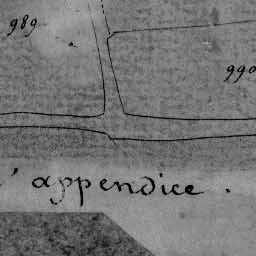 989
990
l'appendice .